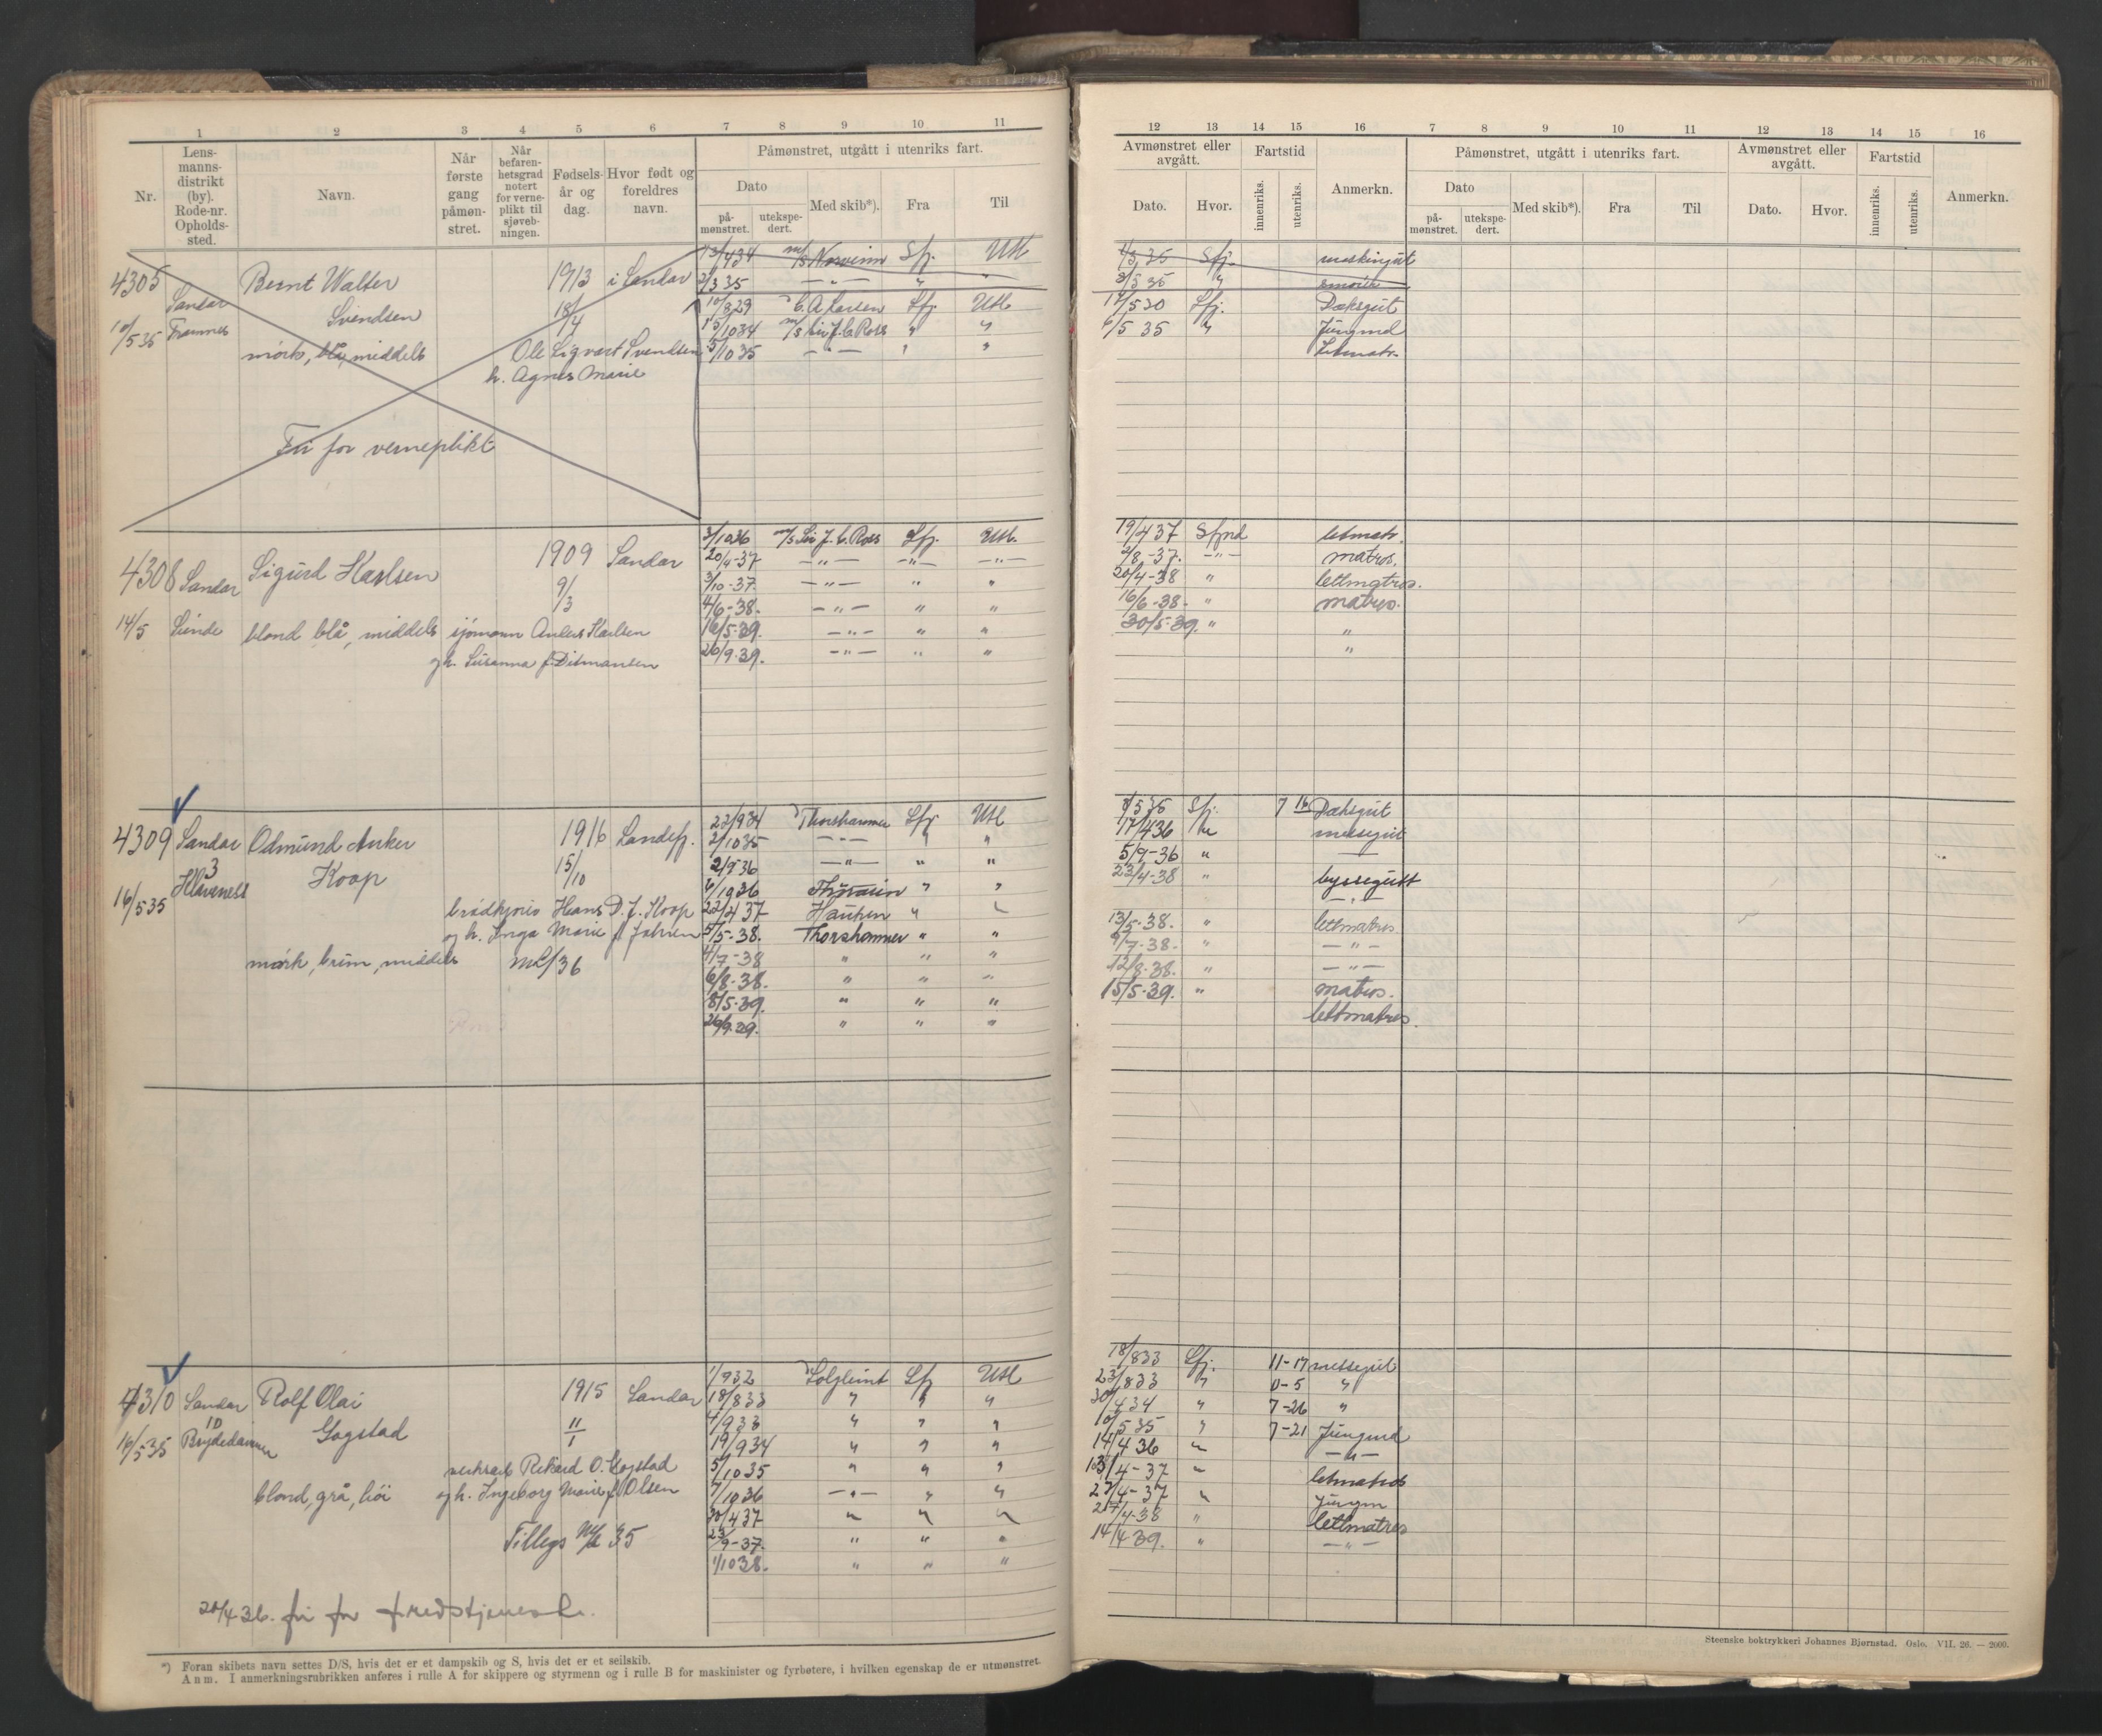 1 2 3 4 5 6 7 8 9 10 11
Nr. Lensmannsdistrikt (by). Rode-nr. Opholdssted. Navn. Når første gang påmønstret. Når befarenhetsgrad notert for verneplikt til sjøvebningen. Fødselsår og dag. Hvor født og foreldres navn. Påmønstret, utgått i utenriks fart.
Dato Med skib*). Fra Til
påmønstret. utekspedert.
4305 Bernt Walter 1913 i Sandar 13/4 34 m/s Norvinn Sfj. Utl
Sandar Svendsen 18/4 2/3 35 — " — " "
10/5 35 Framnes 10/8 29 C. A. Larsen Sfj. Utl.
mørk, blå, middels Ole Sigvart Svendsen 15/10 34 m/s Sir J. C. Ross " "
h. Agnes Marie 5/10 35 — " — " "
Fri for verneplikt
4308 Sandar Sigurd Karlsen 1909 Sandar 3/10 36 m/s Sir J. C. Ross Sfj. Utl.
9/3 20/4-37 — " — — " — — " —
3/10-37. — " — " "
4/6-38. — " — " "
14/5 Sunde blond blå, middels sjømann Anders Karlsen 16/5-39. — " — " "
og h. Susanna f. Ditmansen 26/9-39. — " — " "
4309 Sandar Odmund Anker 1916 Sandefj. 22/9 34 Thorshammer Sfj. Utl
3 Koop 15/10 2/10 35 — " — " "
16/5 35 2/9-36 — " — " "
6/10 36 Thorshavn " "
brødkjører Hans D. J. Koop 22/4 37 Hauken " "
og h. Inga Marie f. Jahren 5/5-38. Thorshammer " "
mørk, brun, middels ml/36 4/7-38 " " "
6/8-38. " " "
8/5-39. " " "
26/9-39. " " "
4310 Sandar Rolf Olai 1915 Sandar 1/9 32 Solglimt Sfj Utl
10 Gogstad 11/1 18/8 33 " " "
16/5 35 Brydedammen 4/9 33 " " "
19/9 34 " " "
verksarb. Rikard O. Gogstad 5/10 35 " " "
blond, grå, høi og h. Ingeborg Marie f. Olsen 7/10 36 — " — " "
Tillegs ml 35 30/4 37 " " "
23/9-37. " " "
1/10 38. " " "
20/4 36. fri for fredstjeneste.
*) Foran skibets navn settes D/S, hvis det er et dampskib og S, hvis det er et seilskib.
Anm. I anmerkningsrubrikken anføres i rulle A for skippere og styrmenn og i rulle B for maskinister og fyrbøtere, i hvilken egenskap de er utmønstret.
12 13 14 15 16 7 8 9 10 11 12 13 14 15 16
Avmønstret eller avgått. Fartstid Anmerkn. Påmønstret, utgått i utenriks fart. Avmønstret eller avgått. Fartstid Anmerkn.
Dato. Hvor. innenriks. utenriks. Dato Med skib*). Fra Til Dato. Hvor. innenriks. utenriks.
påmønstret. utekspedert.
1/3 35 Sfj. maskingut
3/5 35 " smører
17/5 30 Sfj. Dæksgut
6/5 35 " Jungmd
Letmatr.
19/4 37 Sfjrd letmatr.
2/8-37. — " — matros.
20/4-38 " lettmatros.
16/6-38. " matros.
30/5-39. " "
"
8/5 35 Sfj. 7 16 Dæksgut
17/4 36 messegut
5/9-36 " —
23/4-38 " byssegutt
— " —
13/5-38. " lettmatros
9/7-38. " — " —
12/8-38. " — " —
15/5-39. " matros.
lettmatros.
18/8 33 Sfj. 11-17 messegut
23/8 33 " 0-5 "
30/4 34 " 7-26 "
10/5 35 " 7-21 Jungmd
14/4 36 " — " —
13/4-37 " letmatros
27/4-37 " jungm
27/4-38 " lettmatros
14/4 39. " — " —
Steenske boktrykkeri Johannes Bjørnstad. Oslo. VII. 26. — 2000.